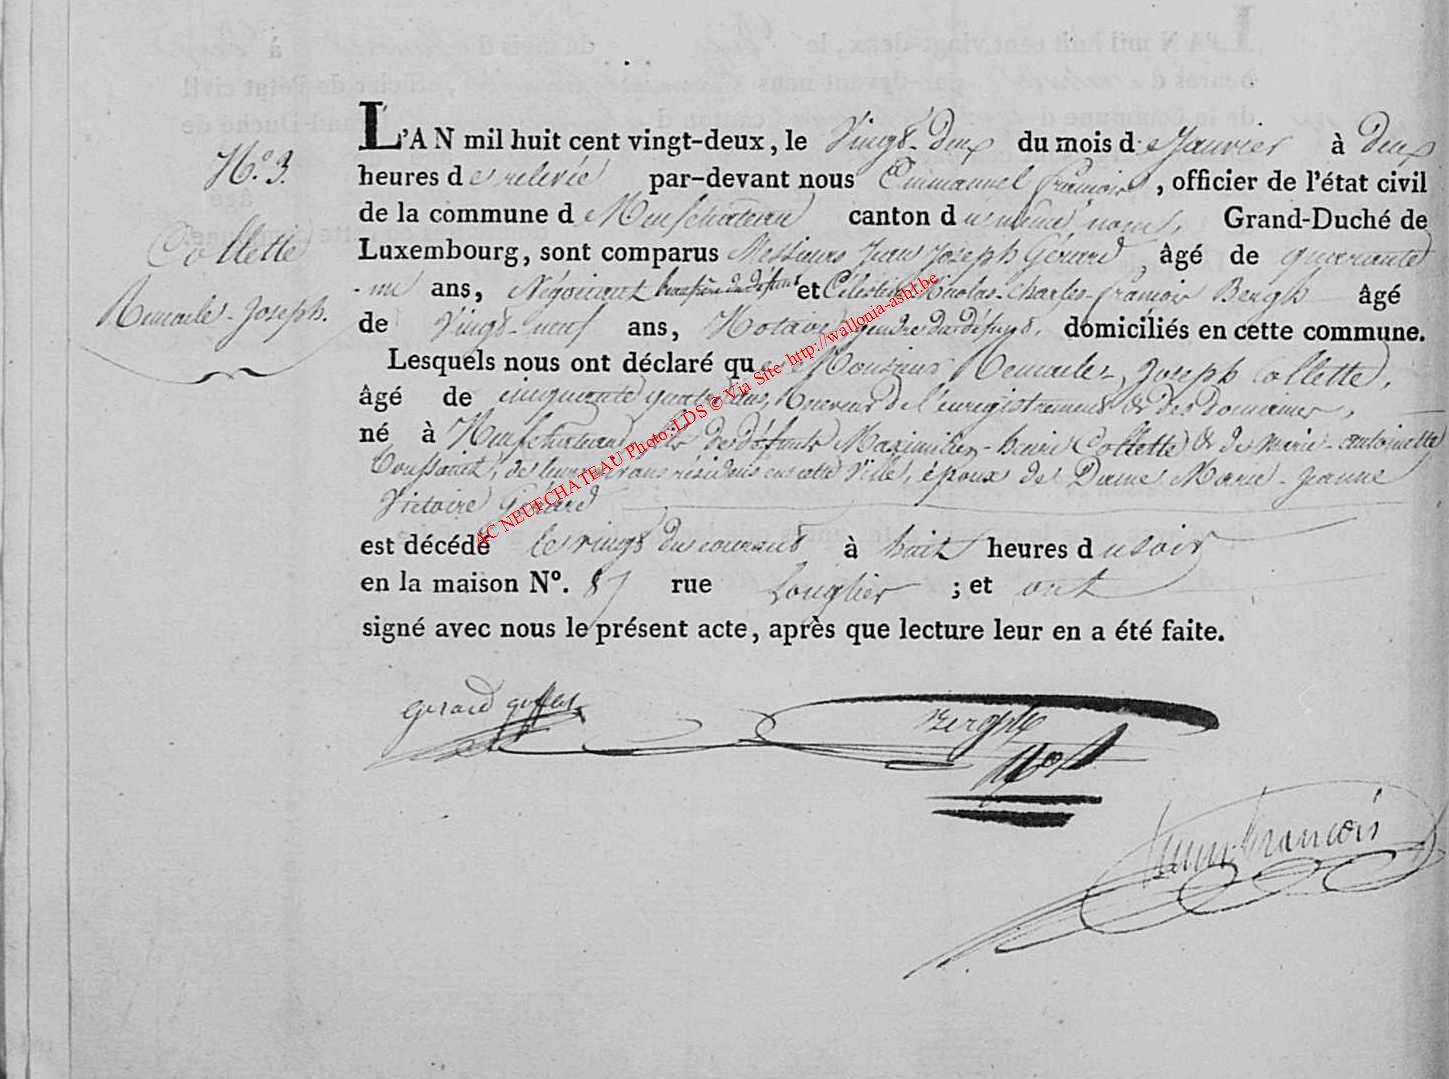 N.º 3.
Collette
Remacle-Joseph.
L'AN mil huit cent vingt-deux, le Vingt-deux du mois de Janvier à deux
heures de relevée par-devant nous Emmanuel François, officier de l'état civil
de la commune de Neufchateau canton du même nom, Grand-Duché de
Luxembourg, sont comparus Messieurs Jean Joseph Gérard âgé de quarante
-un ans, Négociant beaufrère du défunt et Célestin-Nicolas-Charles-françois Bergh âgé
de Vingt-neuf ans, Notaire gendre du défunt, domiciliés en cette commune.
Lesquels nous ont déclaré que Monsieur Remacle-Joseph Collette,
âgé de cinquante quatre ans, Receveur de l'enregistrement & des domaines,
né à Neufchateau, fils des défunts Maximilien-henri Collette & de Marie-antoinette
de leur vivans résidens en cette Ville, époux de Dame Marie-Jeanne
Victoire Gérard
est décédé le vingt du courant à huit heures du soir
en la maison Nº. 87 rue Longlier ; et ont
signé avec nous le présent acte, après que lecture leur en a été faite.
gerard
Bergh
Not
Emm. François
AC NEUFCHATEAU Photo LDS © Via Site http://wallonia-asbl.be